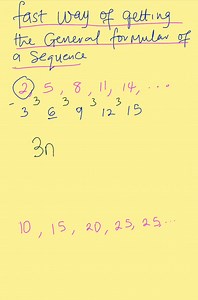 fast way of getting
the General formular of
a Sequence
2, 5, 8, 11, 14, ...
- 3 3 3 3
3 6 9 12 15
3n
10, 15, 20, 25, 25...